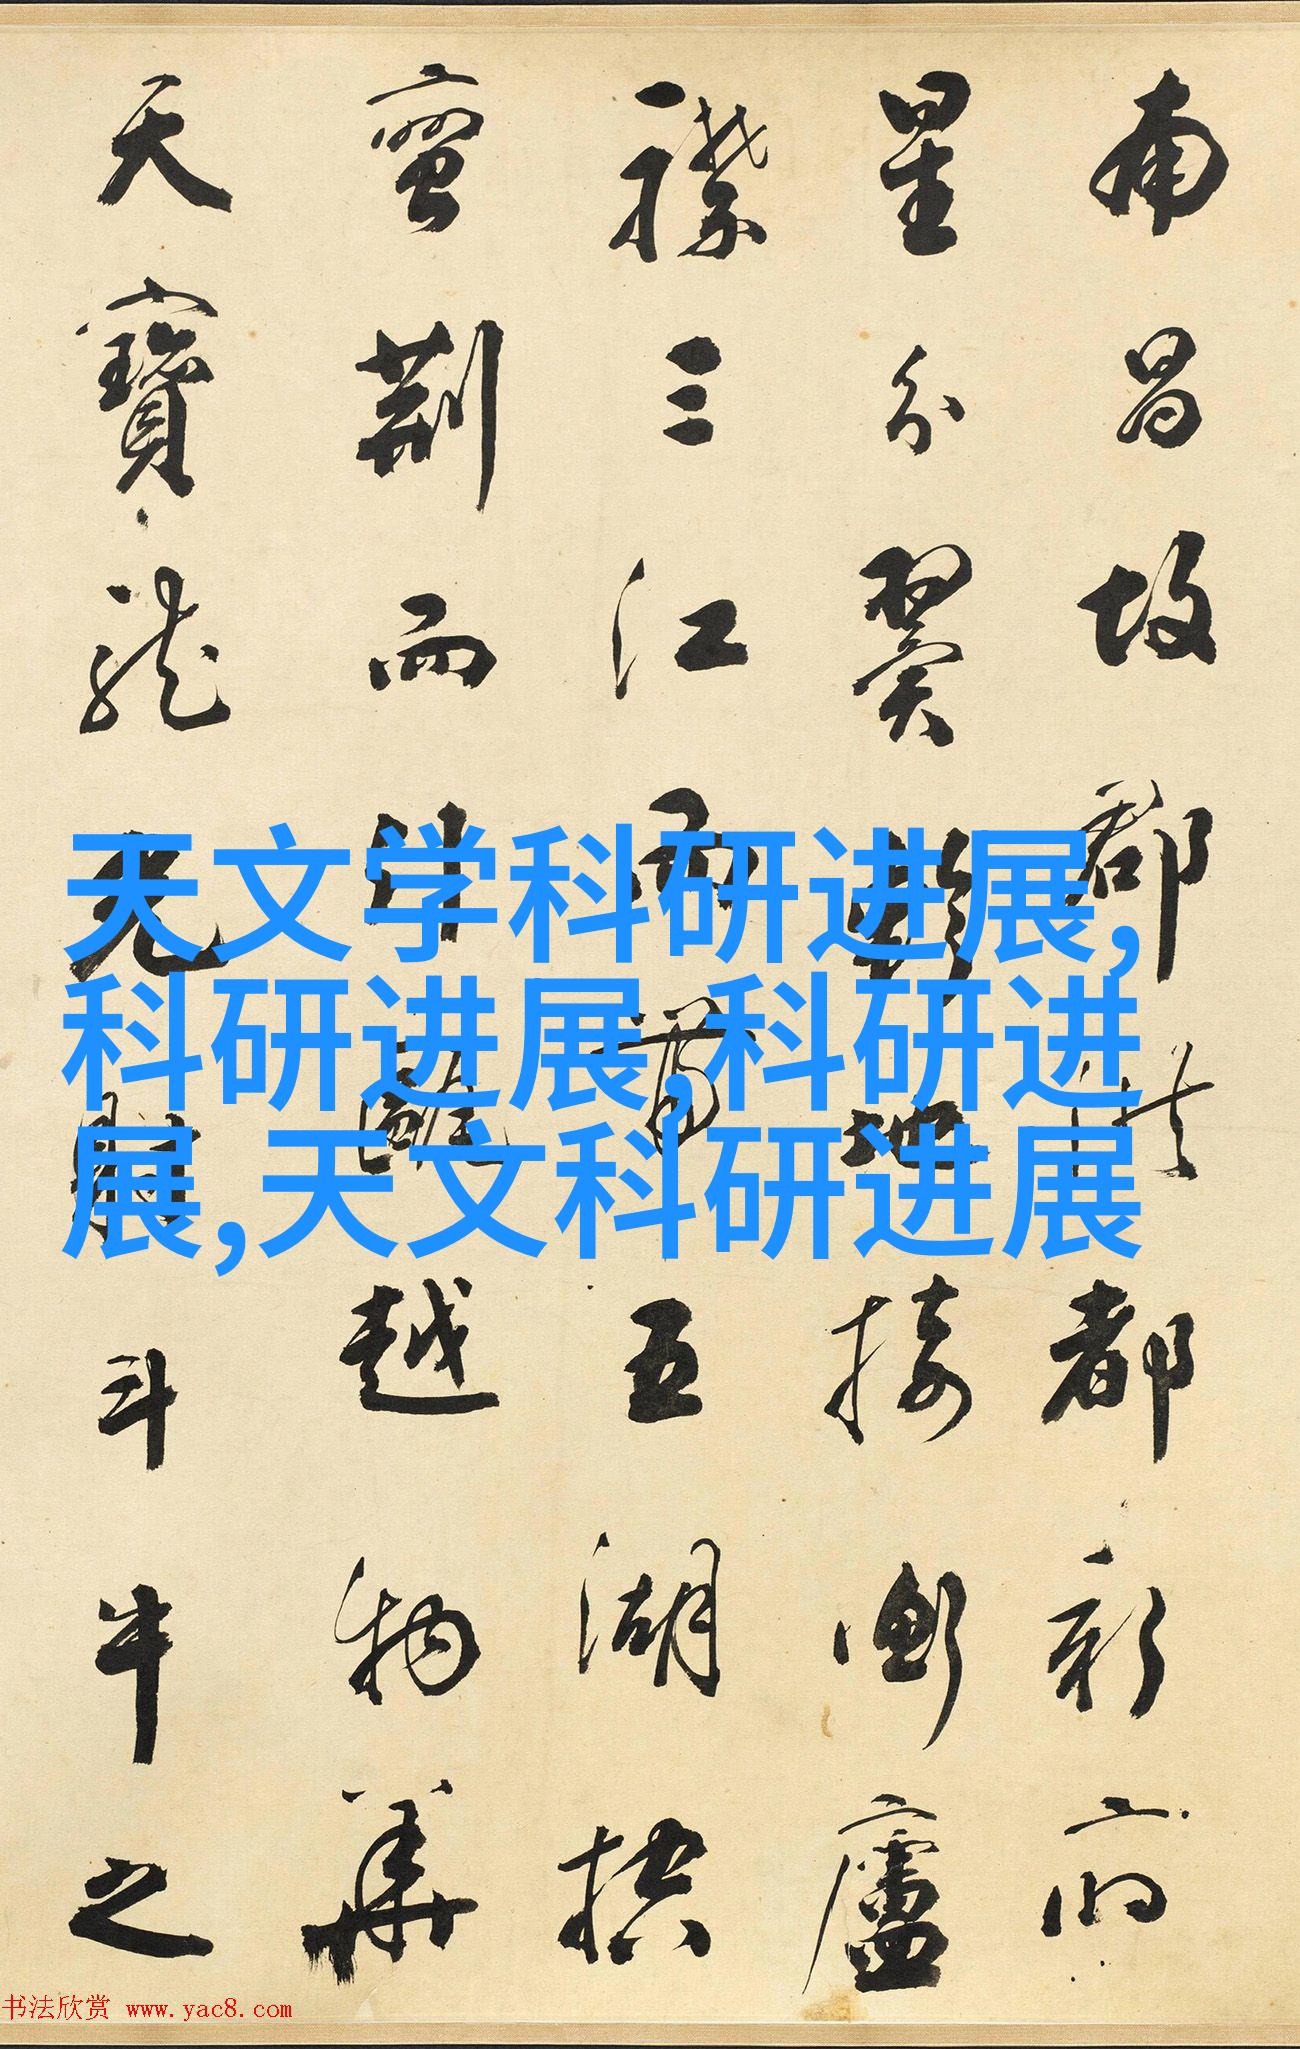 南昌故郡洪都新府
星分翼軫地接衡廬
襟三江而帶五湖控
蠻荊而引甌越物華
天寶龍光射斗牛之
天文学科研进展,
科研进展,科研进
展,天文科研进展
书法欣赏 www.yac8.com